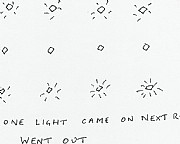 ONE LIGHT CAME ON NEXT
WENT OUT